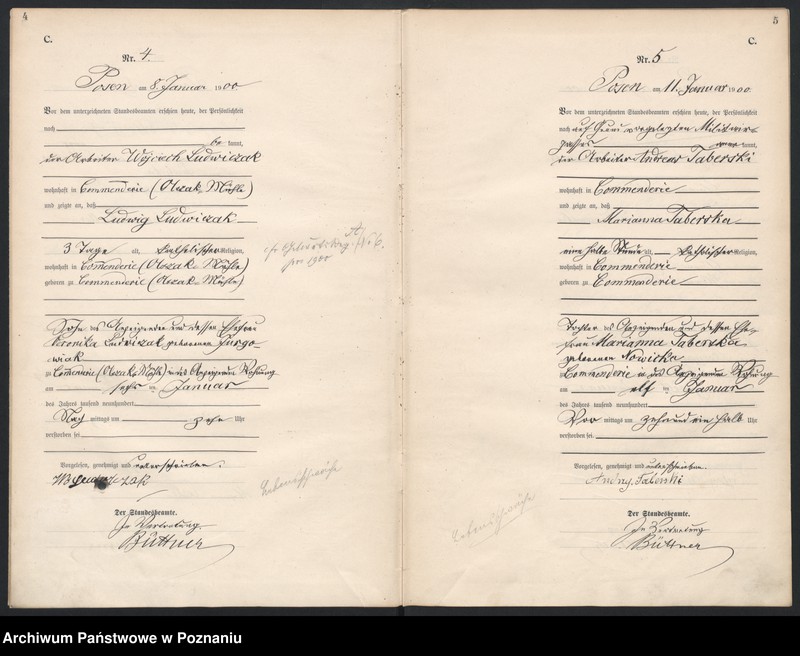 4
C.
Nr. 4.
Posen am 8. Januar 1900
Vor dem unterzeichneten Standesbeamten erschien heute, der Persönlichkeit
nach
be kannt,
der Arbeiter Wojciech Ludwiczak
wohnhaft in Commenderie (Olszak Mühle)
und zeigte an, daß
Ludwig Ludwiczak
3 Tage alt, katholischer Religion,
wohnhaft in Commenderie (Olszak Mühle)
geboren zu Commenderie (Olszak Mühle)
Sohn des Anzeigenden und dessen Ehefrau
Veronika Ludwiczak geborenen
wiak
zu Commenderie (Olszak Mühle) in des Anzeigenden Wohnung
am sechs ten Januar
des Jahres tausend neunhundert
Nach mittags um zehn Uhr
verstorben sei
Vorgelesen, genehmigt und unterschrieben.
W Ludwiczak
Der Standesbeamte.
In Vertretung
Büttner
A
No 6.
pro 1900
5
C.
Nr. 5
Posen am 11. Januar 1900
Vor dem unterzeichneten Standesbeamten erschien heute, der Persönlichkeit
nach auf Grund vorgelegten Militair-
passes kannt,
der Arbeiter Andreas Taberski
wohnhaft in Commenderie
und zeigte an, daß
Marianna Taberska
eine halbe Stunde alt, katholischer Religion,
wohnhaft in Commenderie
geboren zu Commenderie
Tochter des Anzeigenden und dessen Ehe-
frau Marianna Taberska
geborenen Nowicka
zu Commenderie in des Anzeigenden Wohnung
am elf ten Januar
des Jahres tausend neunhundert
Vor mittags um zehn und ein halb Uhr
verstorben sei
Vorgelesen, genehmigt und unterschrieben.
Andrzy. Taberski
Der Standesbeamte.
In Vertretung
Büttner
Archiwum Państwowe w Poznaniu